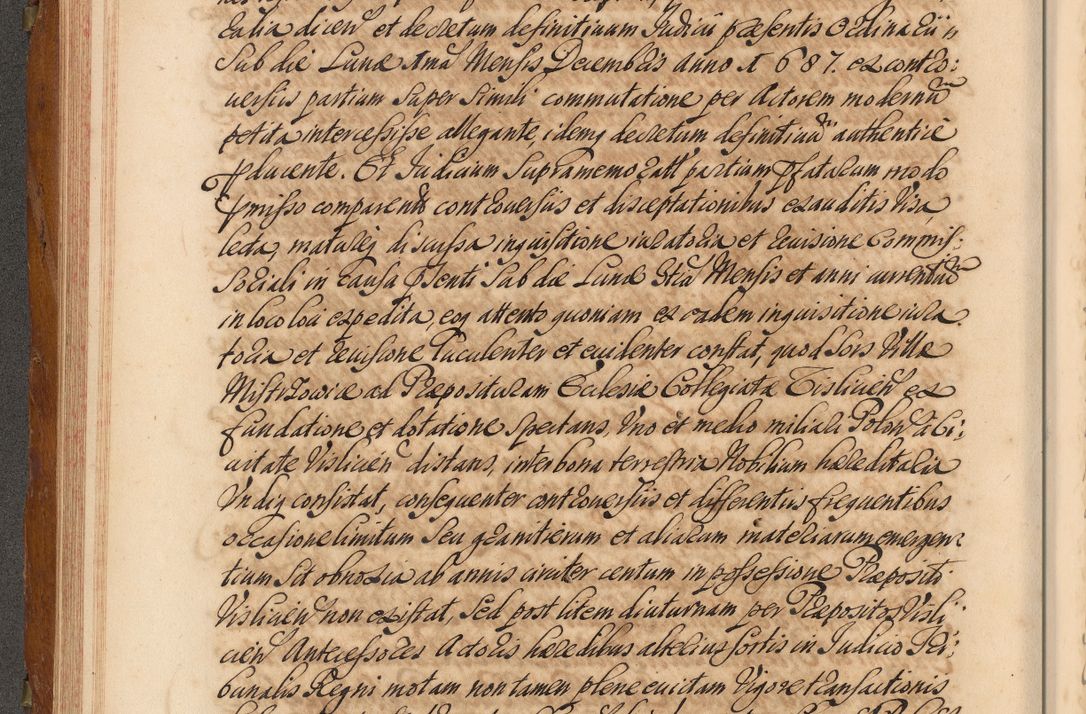 talia dicen et decretum definitivum Judicii præsentis Ordinarii
sub die Lunæ 1ma Mensis Decembris anno 1687. ex contro:
versiis partium super simili commutatione per Actorem modernum
petita intercessisse allegante, idemq decretum definitivum authentice
pducente. Et Judicium Supramemoratt partium pfatarum modo
pmisso comparentt controversiis et disceptationibus exauditis visa
lecta, matureq discussa inquisitione iuratoria et revisione Commis:
soriali in causa psenti sub die Lunæ Mensis et anni currentium
in loco loci expedita, eoq attento quoniam ex eadem inquisitione iura
toria et revisione luculenter et evidenter constat, quod sors Villæ
Mistrzowice ad Præposituram Ecclesiæ Collegiatæ Visliciens ex
fundatione et dotatione spectans, uno et medio milliari Polon a Ci:
vitate Vislicien distans, inter bona terrestria Nobilium hæreditaria
undiq consistat, consequenter controversiis et differentiis frequentibus
occasione limitum seu granitierum et aliarum materiarum emergen
tium sit obnoxia ab annis circiter centum in possessione Præpositi
Vislicien non existat, sed post litem diuturnam per Præpositos Visli
cien Antecessores Actoris hæredibus alterius sortis in Judicio Tri:
bunalis Regni motam non tamen plene evictam vigore transactionis